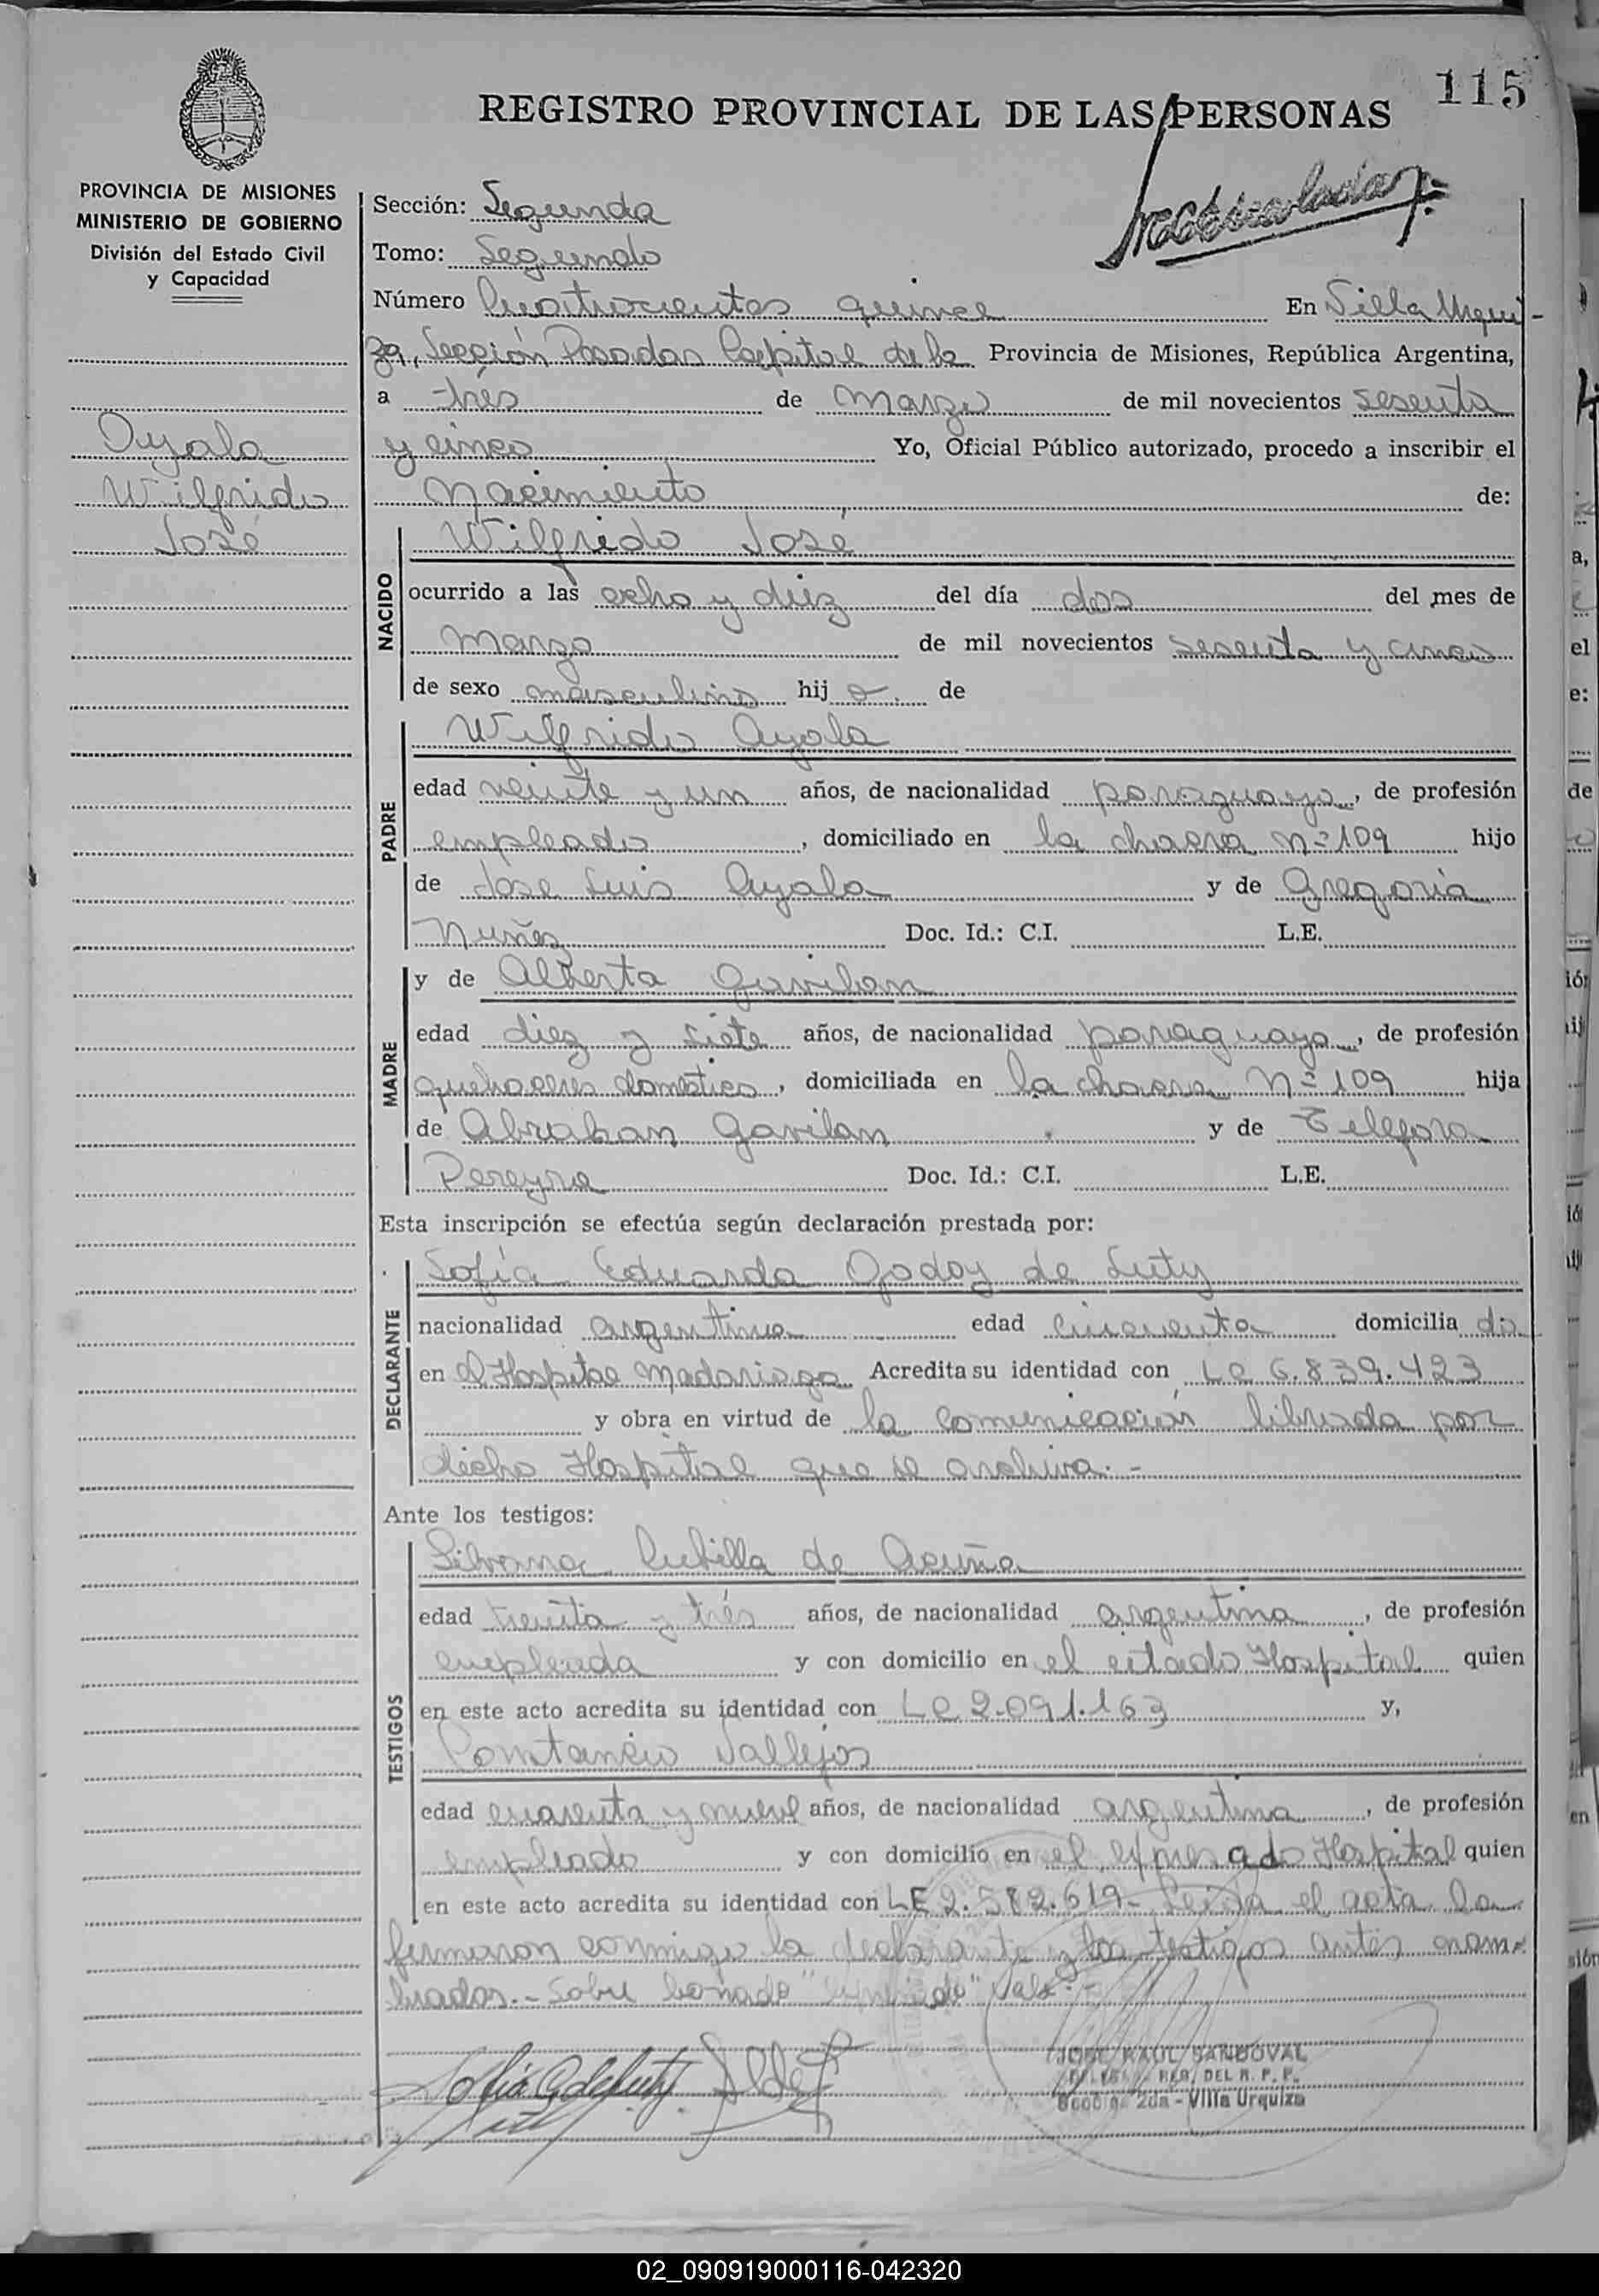 115
REGISTRO PROVINCIAL DE LAS PERSONAS
PROVINCIA DE MISIONES
MINISTERIO DE GOBIERNO
División del Estado Civil
y Capacidad
Ayala
Wilfrido
José
Sección: Segunda
Tomo: Segundo
Número Cuatrocientos quince En Villa Urqui-
za, Sección Posadas Capital de la Provincia de Misiones, República Argentina,
a tres de Marzo de mil novecientos sesenta
y cinco Yo, Oficial Público autorizado, procedo a inscribir el
Nacimiento de:
NACIDO
Wilfrido José
ocurrido a las ocho y diez del día dos del mes de
Marzo de mil novecientos sesenta y cinco
de sexo masculino hij o. de
PADRE
Wilfrido Ayala
edad veinte y un años, de nacionalidad paraguaya, de profesión
empleado, domiciliado en la chacra Nº 109 hijo
de Jose Luis Ayala y de Gregoria
Nuñez Doc. Id.: C.I. L.E.
MADRE
y de Alberta Gavilan
edad diez y siete años, de nacionalidad paraguaya, de profesión
quehaceres domestico, domiciliada en la chacra Nº 109 hija
de Abrahan Gavilan y de Telefora
Pereyra Doc. Id.: C.I. L.E.
Esta inscripción se efectúa según declaración prestada por:
DECLARANTE
Sofía Eduarda Godoy de Luty
nacionalidad argentina edad cincuenta domicilia da
en el Hospital Madariaga Acredita su identidad con LC 6.839.423
y obra en virtud de la comunicación librada por
dicho Hospital que se archiva.-
Ante los testigos:
TESTIGOS
Silvana Cubilla de Acuña
edad treinta y trés años, de nacionalidad argentina, de profesión
empleada y con domicilio en el citado Hospital quien
en este acto acredita su identidad con LC 2.091.163 y,
Constancio Vallejos
edad cuarenta y nueve años, de nacionalidad argentina, de profesión
empleado y con domicilio en el expresado Hospital quien
en este acto acredita su identidad con LE 2.582.619- Leída el acta la
firmaron conmigo la declarante y los testigos antes nom-
brados.- Sobre borrado "expresado" Vale.-
JOSE RAUL SANDOVAL
REG. DEL R. P. P.
Sección 2da - Villa Urquiza
02_090919000116-042320